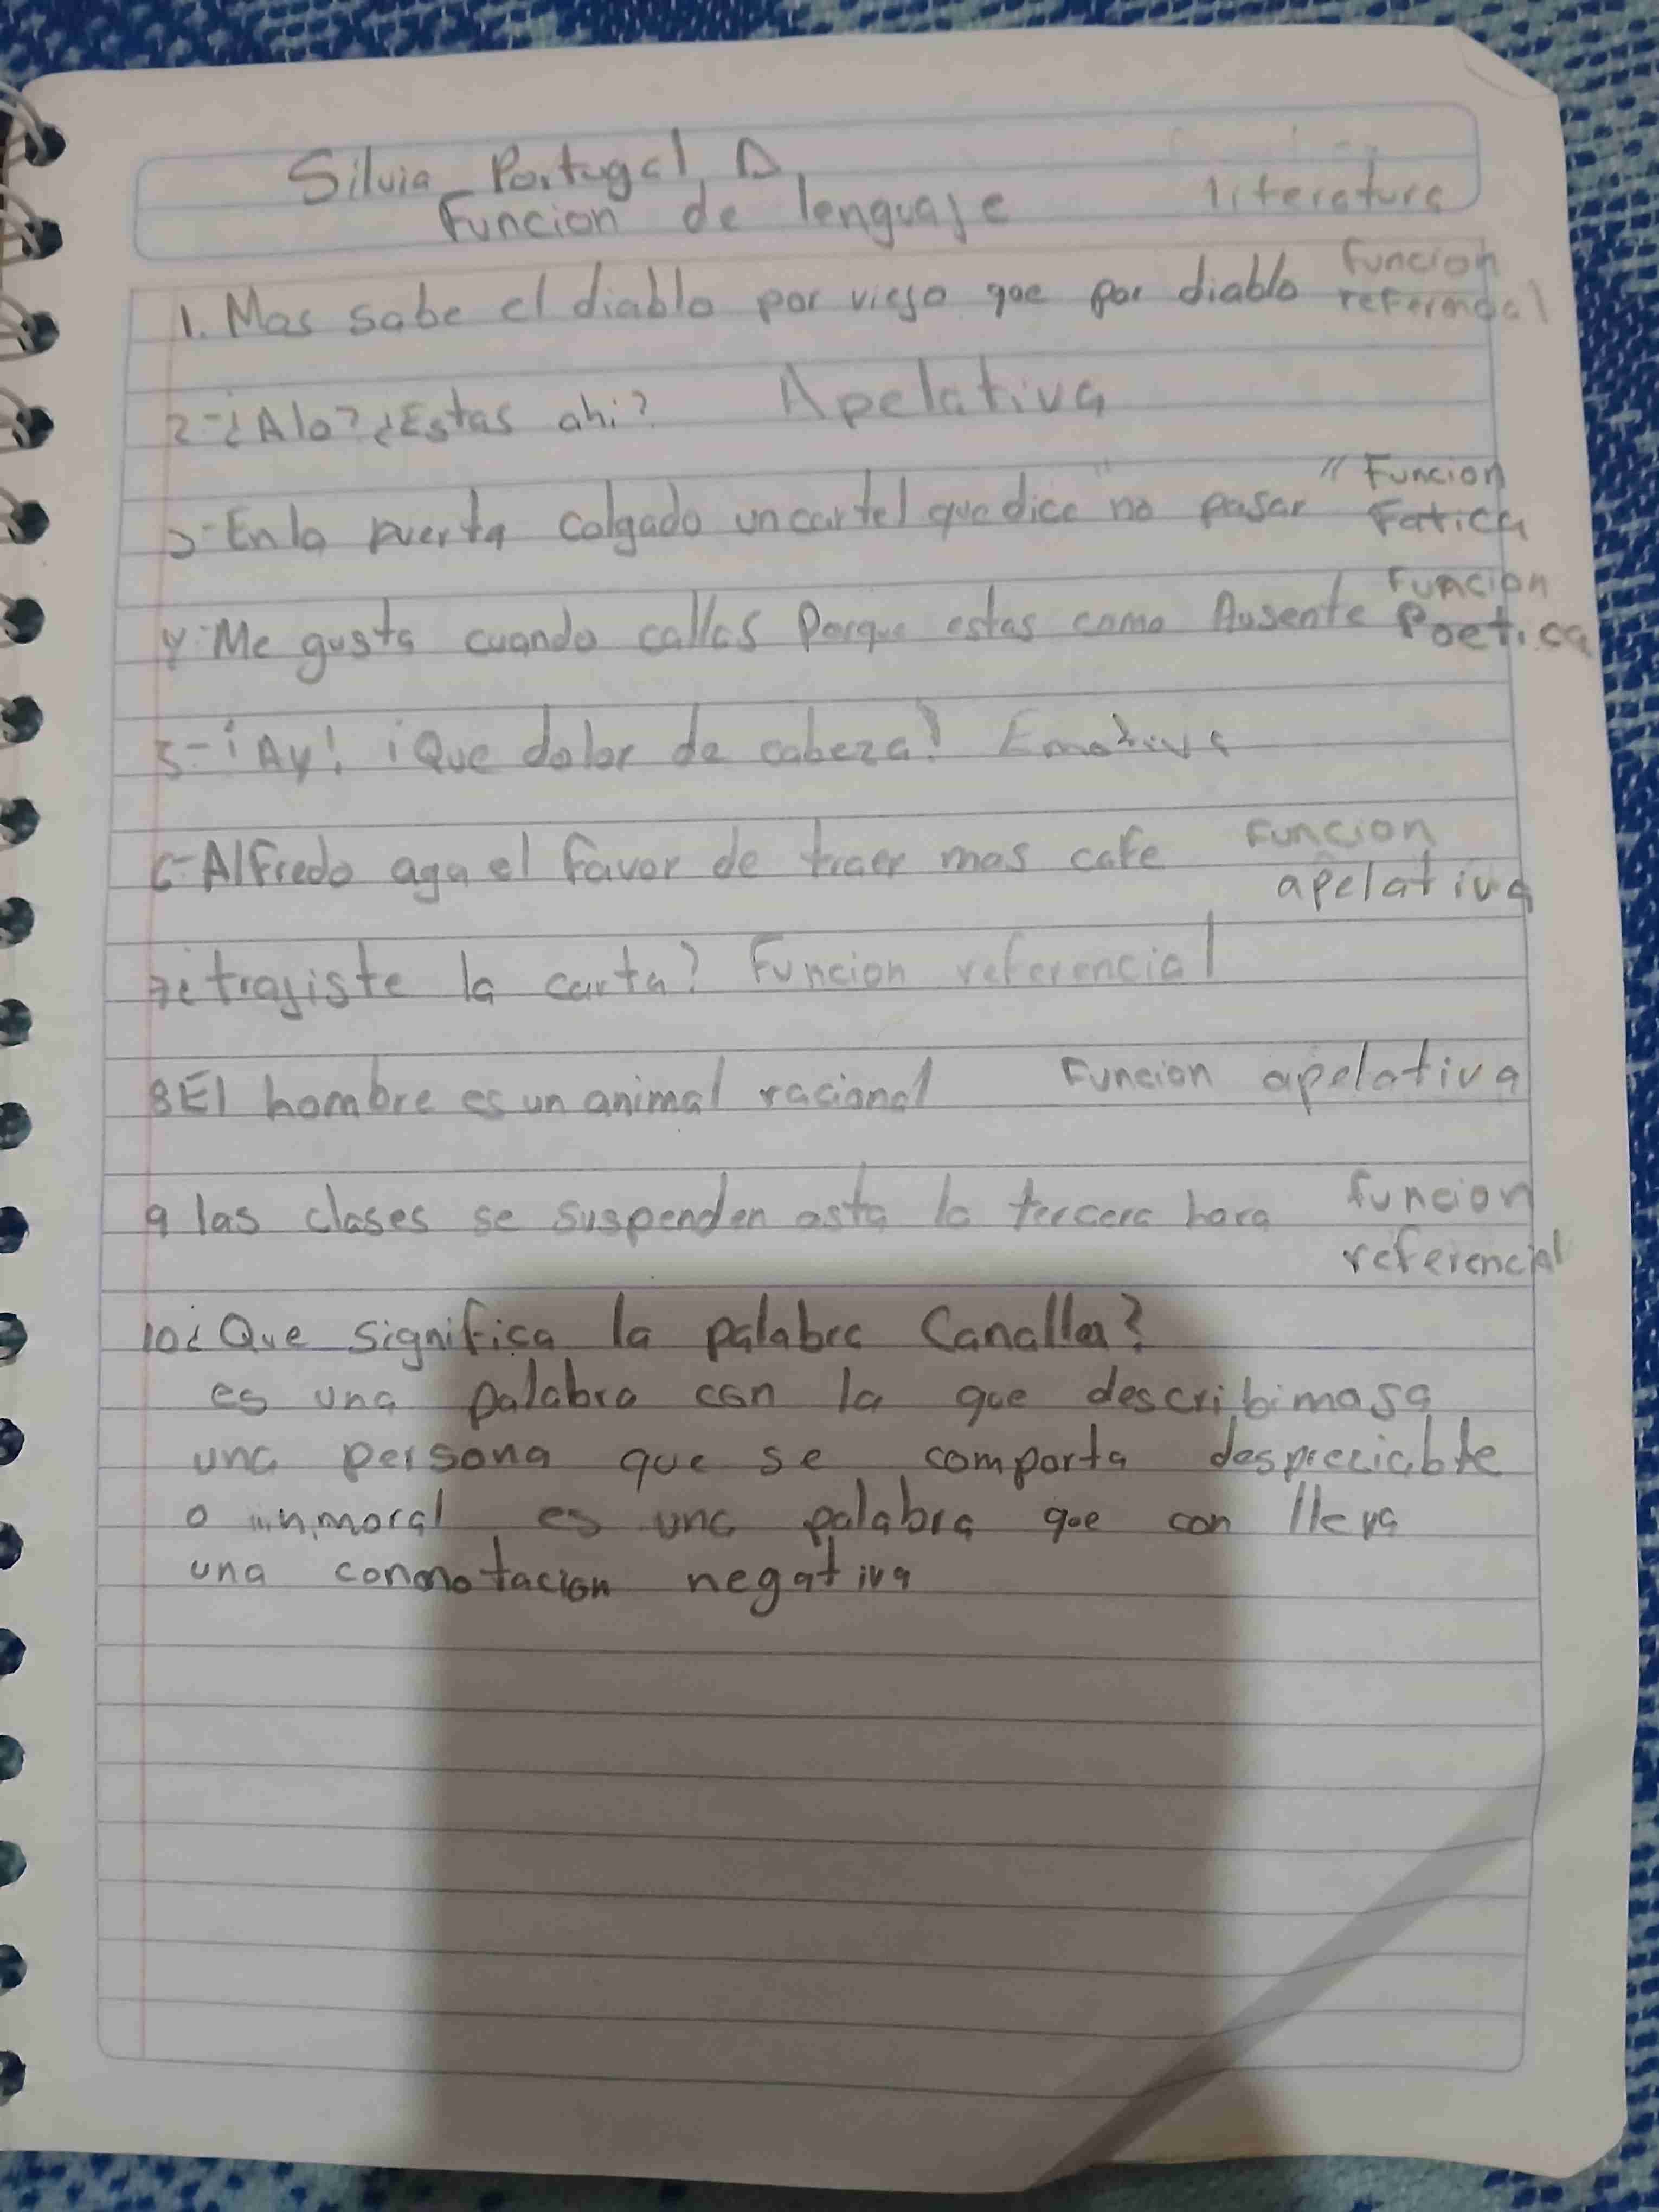 Silvia Portugal D.
Funcion de lenguaje literatura
1. Mas sabe el diablo por viejo que por diablo funcion
referencial
2-¿Alo? ¿Estas ahi? Apelativa
3-En la puerta colgado un cartel que dice "no pasar" Funcion
Fatica
4-Me gusta cuando callas Porque estas como Ausente Funcion
Poetica
5-¡Ay! ¡Que dolor de cabeza! Emotiva
6-Alfredo aga el favor de traer mas cafe Funcion
apelativa
7¿trajiste la carta? Funcion referencial
8El hombre es un animal racional Funcion apelativa
9 las clases se suspenden asta la tercera hora funcion
referencial
10¿Que significa la palabra Canalla?
es una palabra con la que describimos a
una persona que se comporta despreciable
o inmoral es una palabra que con lleva
una connotacion negativa